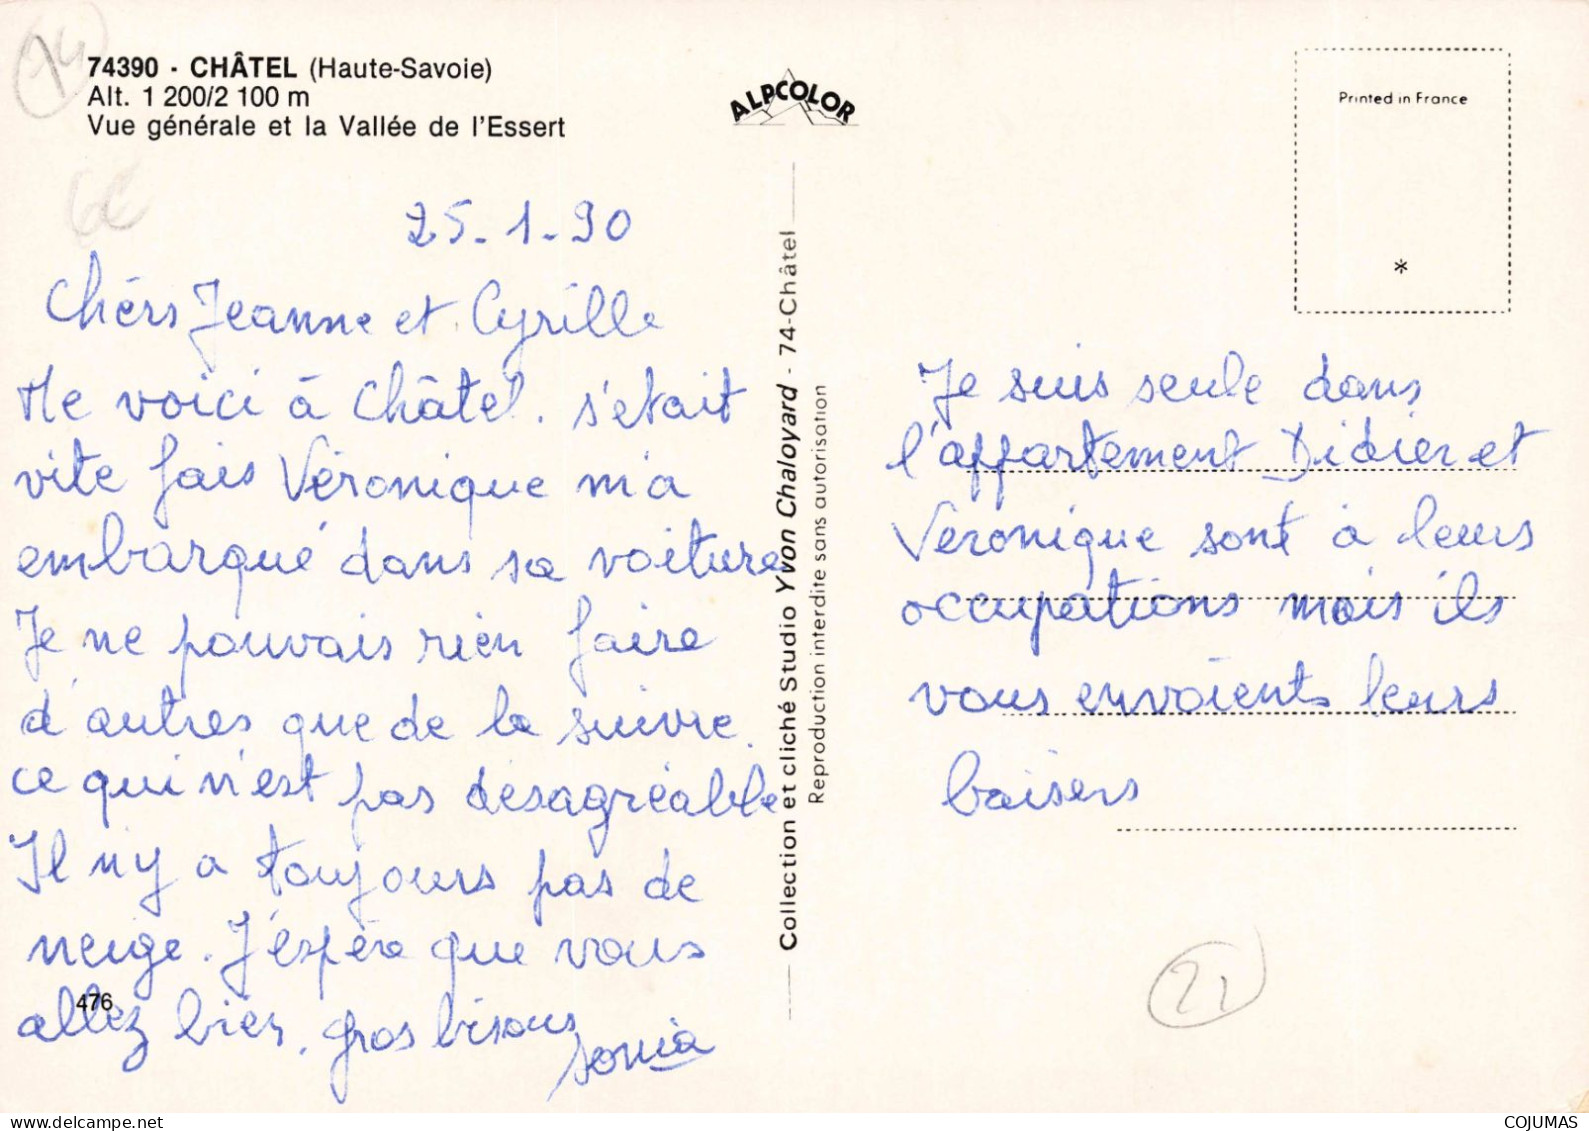 74
74390 - CHÂTEL (Haute-Savoie)
Alt. 1 200/2 100 m
Vue générale et la Vallée de l'Essert
6€
25-1-90
Chérs Jeanne et Cyrille
Me voici à Châtel. s'etait
vite fais Véronique m'a
embarqué dans sa voiture
Je ne pouvais rien faire
d'autres que de la suivre.
ce qui n'est pas désagréable
Il n'y a toujours pas de
neige. J'éspère que vous
allez bien, gros bisous
sonia
476
ALPCOLOR
Collection et cliché Studio Yvon Chaloyard - 74-Châtel
Reproduction interdite sans autorisation
Printed in France
*
Je suis seule dans
l'appartement Didier et
Veronique sont à leurs
occupations mais ils
vous envoients leurs
baisers
21
COJUMAS